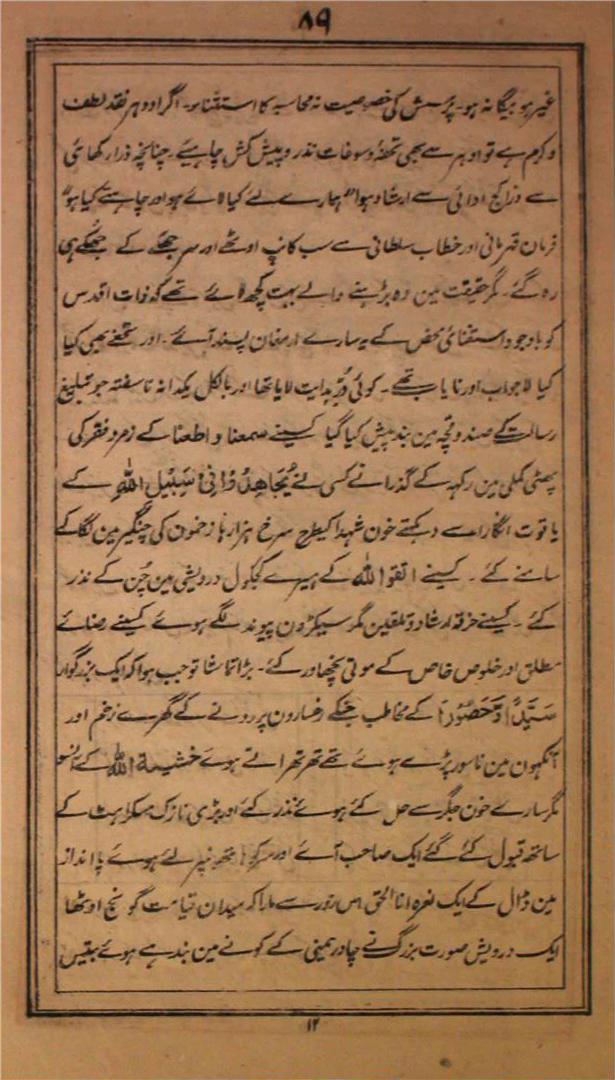 ۸۹
غیر ہو بیگانہ ہو۔ پرسش کی خصوصیت نہ محاسبہ کا استثناء۔ اگر اودہر نقد لطف
و کرم ہے تو اوہر سے بھی تحفہ و سوغات نذر و پیش کش چاہیے۔ چنانچہ ذرا رکھائی
سے ذرا کج ادائی سے ارشاد ہوا "ہمارے لے کیا لاے ہو اور چاہتے کیا ہو"
فرمان قہرمانی اور خطاب سلطانی سے سب کانپ اوٹھے اور سر جھکے کے جھکے ہی
رہ گئے۔ مگر حقیقت مین وہ بڑہنے والے بہت کچھ لائے تھے کہ ذات اقدس
کو باوجود استغنائ محض کے یہ سارے ارمغان پسند آئے۔ اور تحفے بھی کیا
کیا لاجواب اور نایاب تھے۔ کوئی دُرِّ ہدایت لایا تھا اور بالکل یکدانہ ناسفتہ جو تبلیغ
رسالت کے صندوقچہ مین بند پیش کیا گیا کسینے سمعنا و اطعنا کے زمرد فقر کی
پھٹی کملی مین رکہہ کے گذرانے کسی نے یُجَاھِدُوْنَ فِیْ سَبِیْلِ اللّٰہِ کے
یاقوت انگارا سے دہکتے خون شہدا کیطرح سرخ ہزارہا زخمون کی چنگیر مین لگا کے
سامنے کئے۔ کسینے اتقوا اللہ کے ہیرے کجکول درویشی مین چُن کے نذر
کئے۔ کسینے خرقہ ارشاد و تلقین مگر سیکڑون پیوند لگے ہوئے کسینے رضاے
مطلق اور خلوص خاص کے موتی نچھاور کئے۔ بڑا تماشا تو جب ہوا کہ ایک بزرگوار
سَیِّدًا وَّحَصُوْرًا کے مخاطب جنکے رخسارون پر رونے کے گھرے زخم اور
آنکہون مین ناسور پڑے ہوئے تھے تھر تھراتے ہوے خشیۃ اللہ کے آنسو
مگر سارے خون جگر سے حل کئے ہوئے نذر کئے اور بڑی نازک مسکراہٹ کے
ساتھ قبول کئے گئے ایک صاحب آئے اور سر کو ہاتھونپر لئے ہوے پا انداز
مین ڈال کے ایک نعرہ انا الحق اس زور سے مارا کہ میدان قیامت گونج اوٹھا
ایک درویش صورت بزرگ نے چادر یمنی کے کونے مین بندہے ہوئے بتیس
۱۲